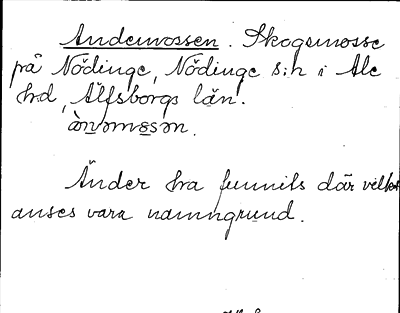 Andemossen. Skogsmosse
på Nödinge, Nödinge s:n i Ale
hd, Älfsborgs län.
ànəmɷsən.
Änder ha funnits där vilket
anses vara namngrund.